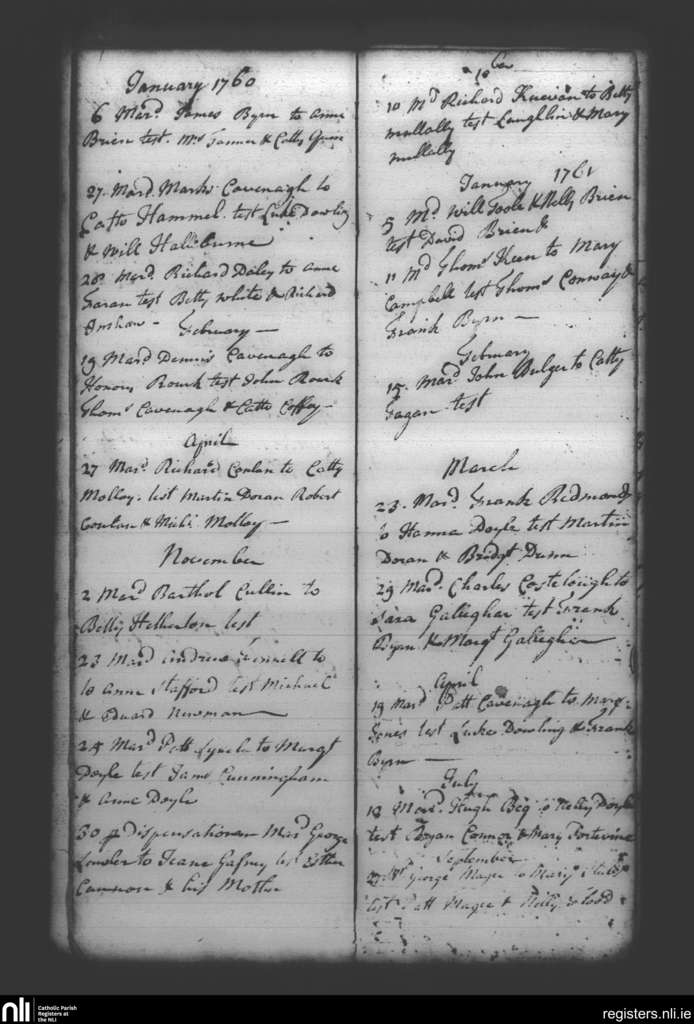 January 1760
6 Mard. James Byrn to Anne
Brien test. Mrs & Catty Quin
27. Mard. Marks Cavenagh to
Catte Hammel. test Luke Dowling
& Will Haliburne
28 Mard. Richard Daley to Anne
Faran test Betty White & Richard
February
19 Mard Dennis Cavenagh to
Honor Rourk test John Rourk
Thoms Cavenagh & Catte Coffey
April
27 Mard. Richard Conlan to Catty
Molloy. test Martin Doran Robert
Conlan & Michl. Molloy
November
2 Mard Barthol Cullin to
Betty Hetherton test
23 Mard Andrew Kennell to
to Anne Stafford test Michael
& Eduard Newman
24 Mard Patt Lynch to Margt
Doyle test James Cunningham
& Anne Doyle
30 p Dispensationem Mard George
Lawler to Jeane Gafney test Esther
Cannon & his Mother
10 Md Richard to Betty
Mullally test Laughlin & Mary
Mullally
January 1761
5 Md. Will Toole & Nelly Brien
test David Brien &
11 Md Thoms Keen to Mary
Campbell test Thoms Conway &
Frank Byrn
February
15. Mard John Bulger to Catty
Fagan test
March
23. Mard. Frank Redmond
to Hanna Doyle test Martin
Doran & Bridgt Dunn
29 Mard. Charles Costelough to
Sara Galieghar test Frank
Byrn & Margt Galieghar
April
19 Mard Patt Cavenagh to Margt
Jones test Luke Dowling & Frank
Byrn
July
13 Mard. Hugh Beg to Nelly Doyle
test Bryan Connor & Mary
September
George Magee to Mary
test Patt Magee & Nelly
nli
Catholic Parish
Registers at
the NLI
registers.nli.ie